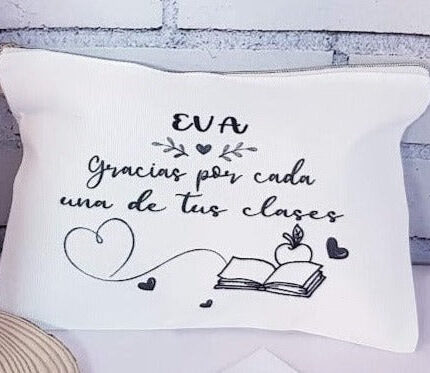 EVA
Gracias por cada
una de tus clases